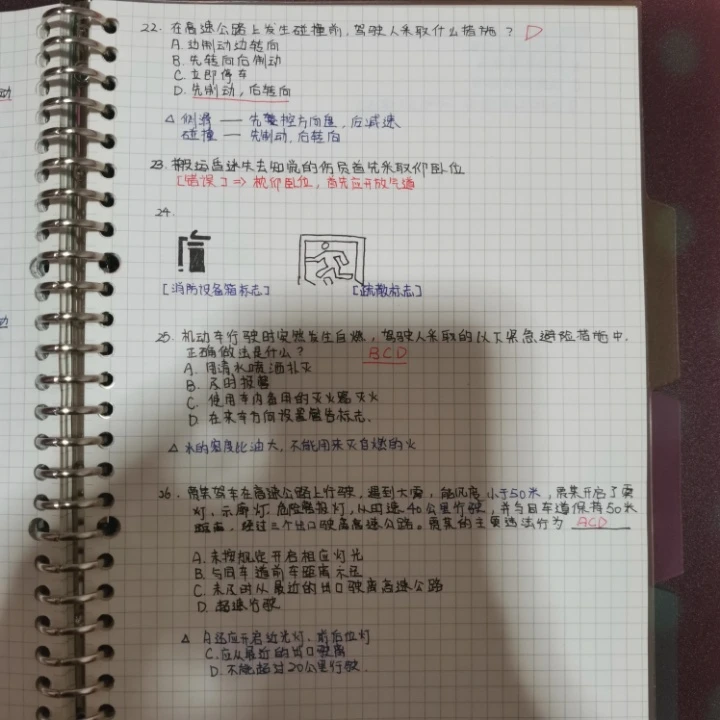 22. 在高速公路上发生碰撞前,驾驶人采取什么措施? D
A. 边制动边转向
B. 先转向后制动
C. 立即停车
D. 先制动,后转向
△ 侧滑 — 先掌控方向盘,后减速
碰撞 — 先制动,后转向
23. 搬运昏迷失去知觉的伤员首先采取仰卧位
[错误] => 忱仰卧位,首先应开放气道
24.
[消防设备箱标志] [疏散标志]
25. 机动车行驶时突然发生自燃,驾驶人采取的以下紧急避险措施中,
正确做法是什么? BCD
A. 用清水喷洒扑灭
B. 及时报警
C. 使用车内备用的灭火器灭火
D. 在来车方向设置警告标志.
△ 水的密度比油大,不能用来灭自燃的火
26. 某驾车在高速公路上行驶,遇到大雾,能见度小于50米,某开启了雾
灯、示廓灯、危险报警灯,从时速40公里行驶,并与同车道保持50米
距离,经过三个出口驶离高速公路。某的主要违法行为 ACD
A. 未按规定开启相应灯光
B. 与同车道前车距离不足
C. 未及时从最近的出口驶离高速公路
D. 超速行驶
△ A还应开启近光灯、前后位灯
C.应从最近的出口驶离
D.不能超过20公里行驶.